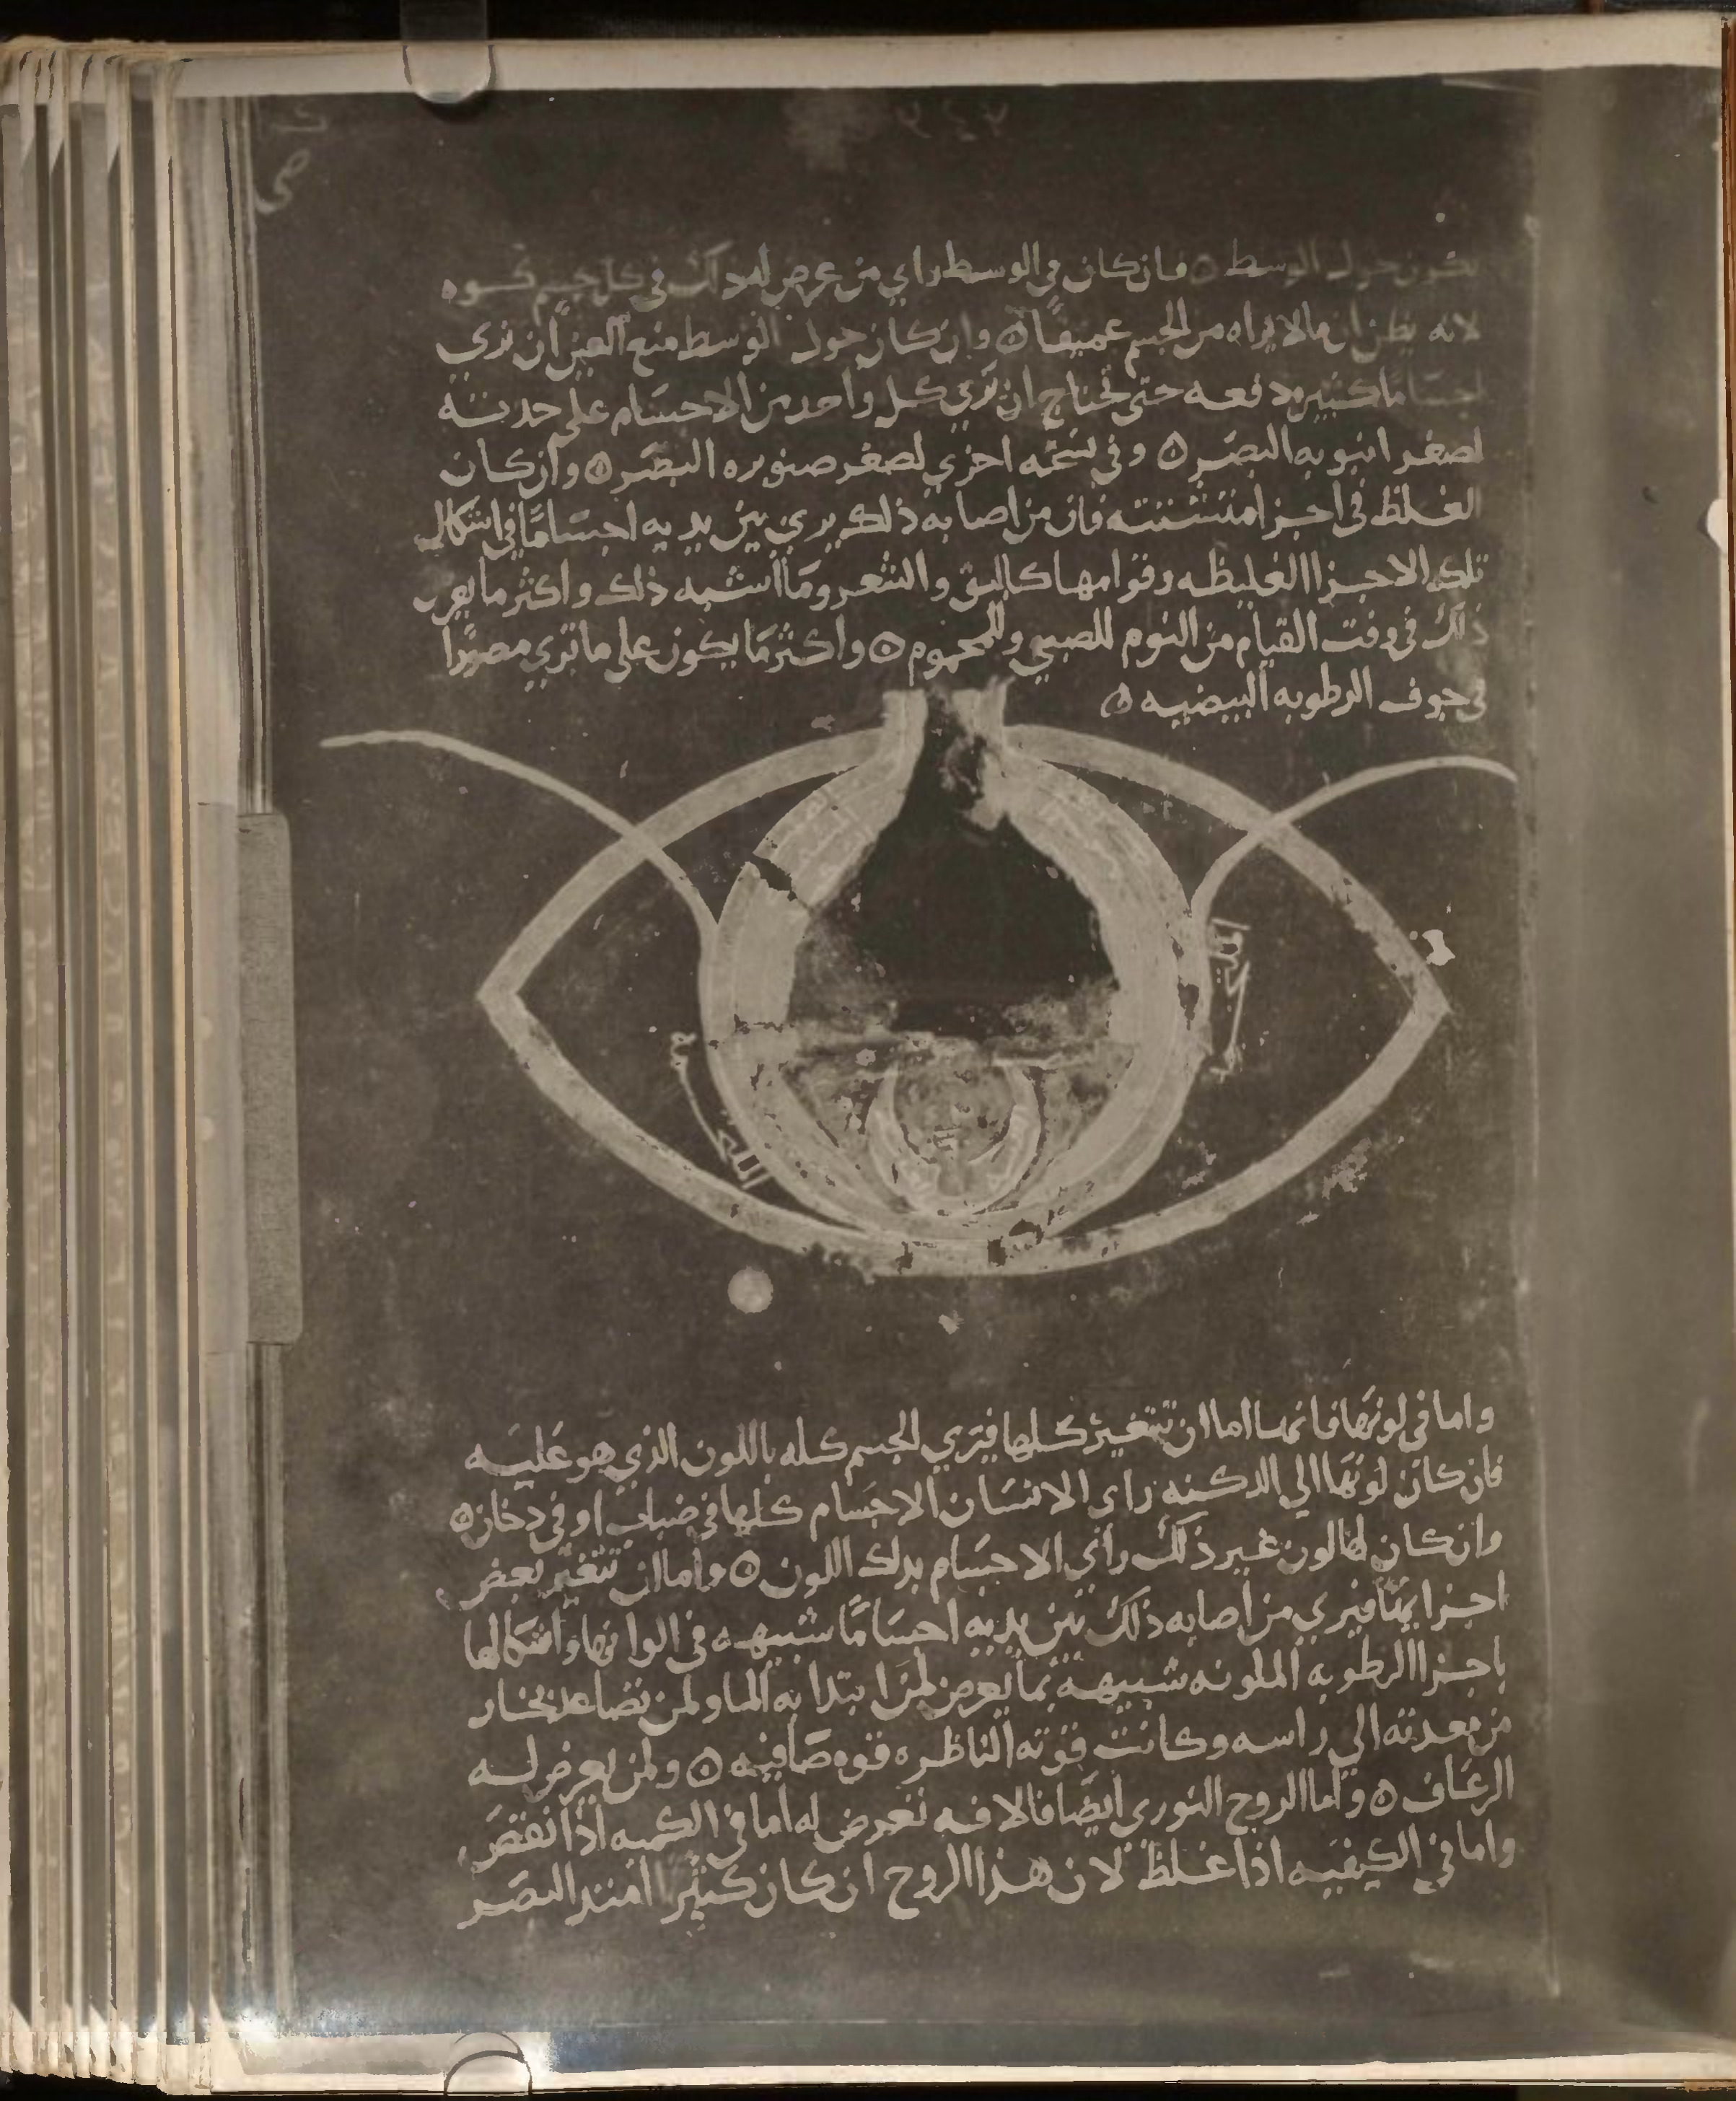 يكون حول الوسط ۞ فان كان في الوسط راي من عرض له ذلك في كل جسم كوه
لانه يظن ان مالا يراه من الجسم عميقًا ۞ وان كان حول الوسط منع العين ان تري
اجسامًا كثيره دفعه حتى تحتاج ان تري كل واحد من الاجسام على حدته
لصغر انبوبه البصر ۞ وفي نسخه اخري لصغر صنوبره البصر ۞ وان كان
الغلظ في اجزا متشتته فان من اصابه ذلك يري بين يديه اجسامًا في اشكال
تلك الاجزا الغليظه وقوامها كالبق والشعر وما اشبه ذلك واكثر ما يعرض
ذلك في وقت القيام من النوم للصبي وللمحموم ۞ واكثر ما يكون على ما تري مصورًا
في جوف الرطوبه البيضيه ۞
الملتحمه
الملتحمه
واما في لونها فانها اما ان تتغير كلها فيري الجسم كله باللون الذي هو عليه
فان كان لونها الي الدكنه راى الانسان الاجسام كلها في ضباب او في دخان ۞
وان كان لها لون غير ذلك راي الاجسام بذلك اللون ۞ واما ان تتغير بعض
اجزايها فيري من اصابه ذلك بين يديه اجسامًا شبيهه في الوانها واشكالها
باجزا الرطوبه الملونه شبيهة بما يعرض لمن ابتدا به الما ولمن تصاعد بخار
من معدته الي راسه وكانت قوته الناظره قوه صافيه ۞ ولمن يعرض له
الرعاف ۞ واما الروح النوري ايضا فالافه تعرض له اما في الكميه اذا نقص
واما في الكيفيه اذا غلظ لان هذا الروح ان كان كثيرا امتد البصر